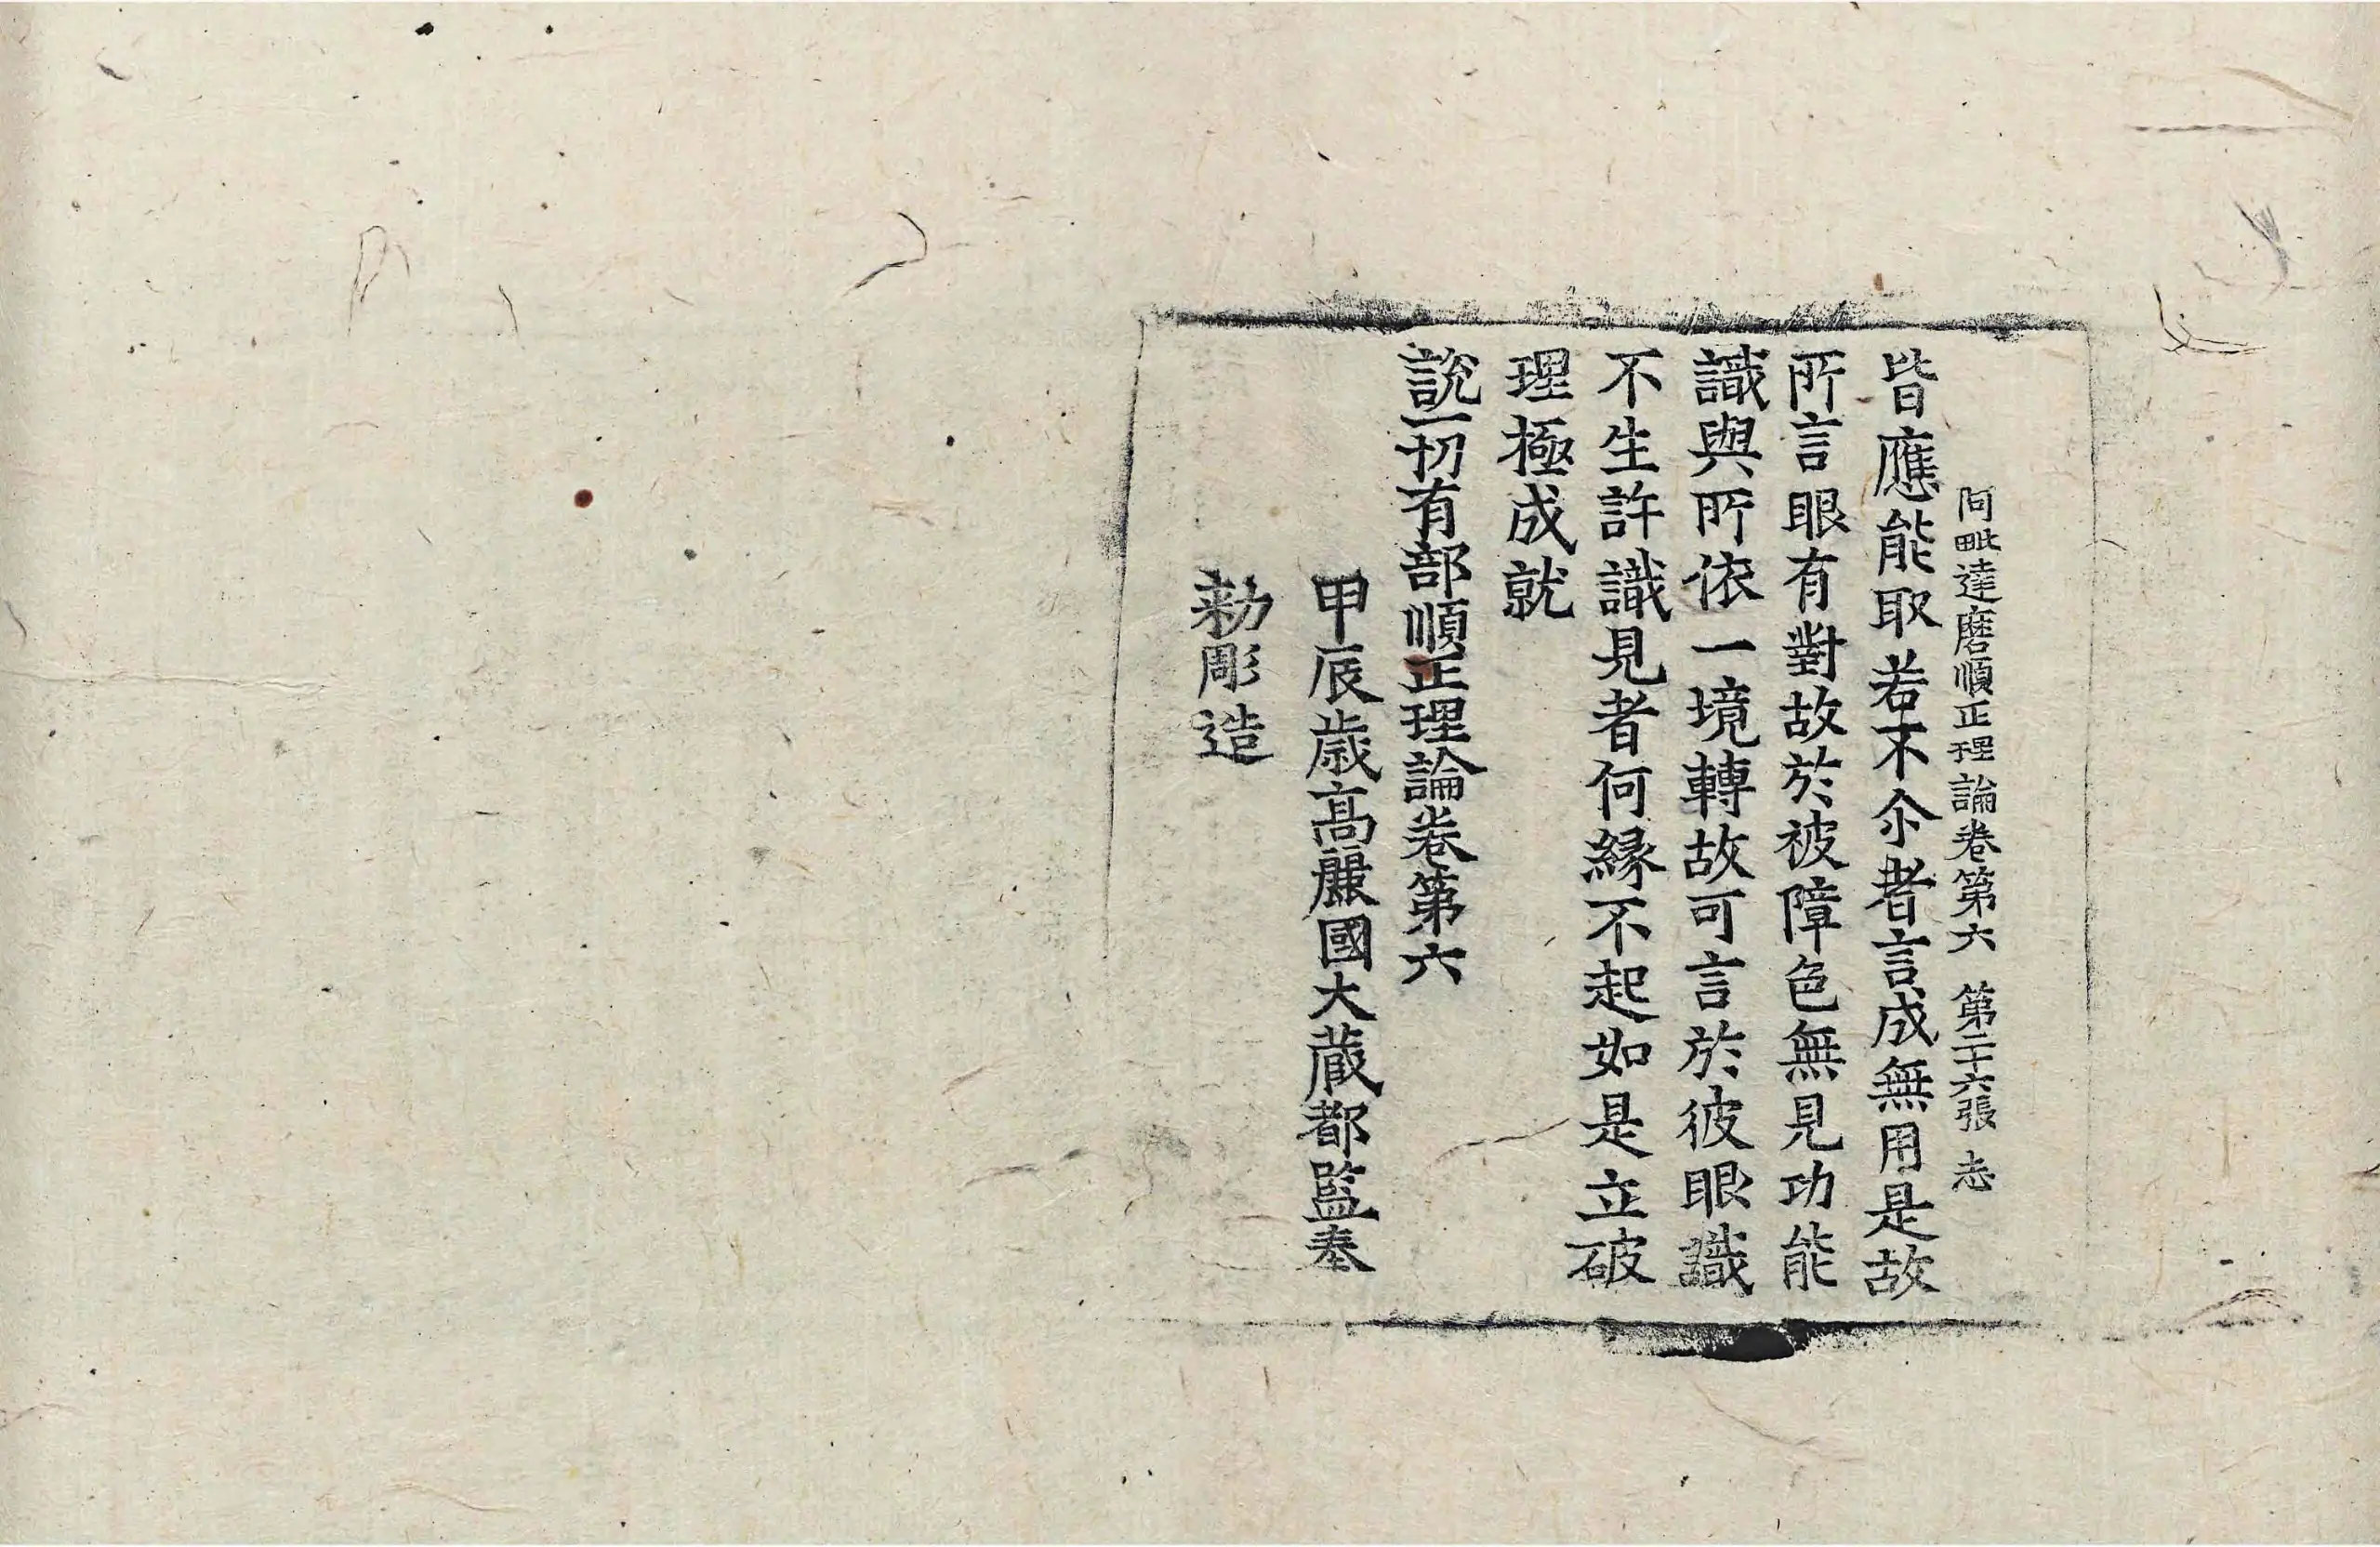 阿毗達磨順正理論卷第六 第二十六張 志
皆應能取若不尒者言成無用是故
所言眼有對故於被障色無見功能
識與所依一境轉故可言於彼眼識
不生許識見者何緣不起如是立破
理極成就
說一切有部順正理論卷第六
甲辰歲高麗國大藏都監奉
勑彫造